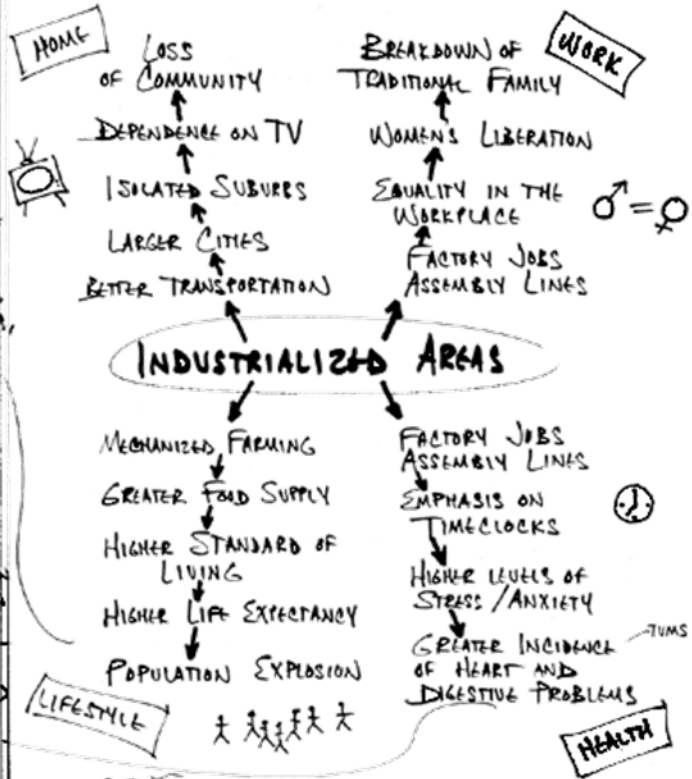 HOME
LOSS
OF COMMUNITY
DEPENDENCE ON TV
ISOLATED SUBURBS
LARGER CITIES
BETTER TRANSPORTATION
WORK
BREAKDOWN OF
TRADITIONAL FAMILY
WOMEN'S LIBERATION
EQUALITY IN THE
WORKPLACE
♂ = ♀
FACTORY JOBS
ASSEMBLY LINES
INDUSTRIALIZED AREAS
MECHANIZED FARMING
GREATER FOOD SUPPLY
HIGHER STANDARD OF
LIVING
HIGHER LIFE EXPECTANCY
POPULATION EXPLOSION
LIFESTYLE
FACTORY JOBS
ASSEMBLY LINES
EMPHASIS ON
TIMECLOCKS
HIGHER LEVELS OF
STRESS/ANXIETY
GREATER INCIDENCE
OF HEART AND
DIGESTIVE PROBLEMS
TUMS
HEALTH